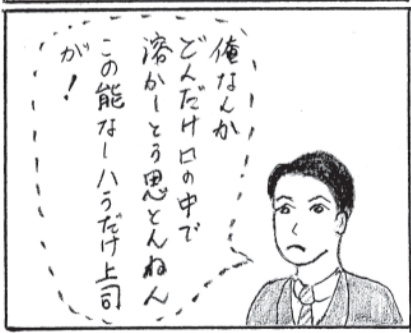 俺なんか
どんだけ口の中で
溶かしとう思とんねん
この能なしハうだけ上司
が!